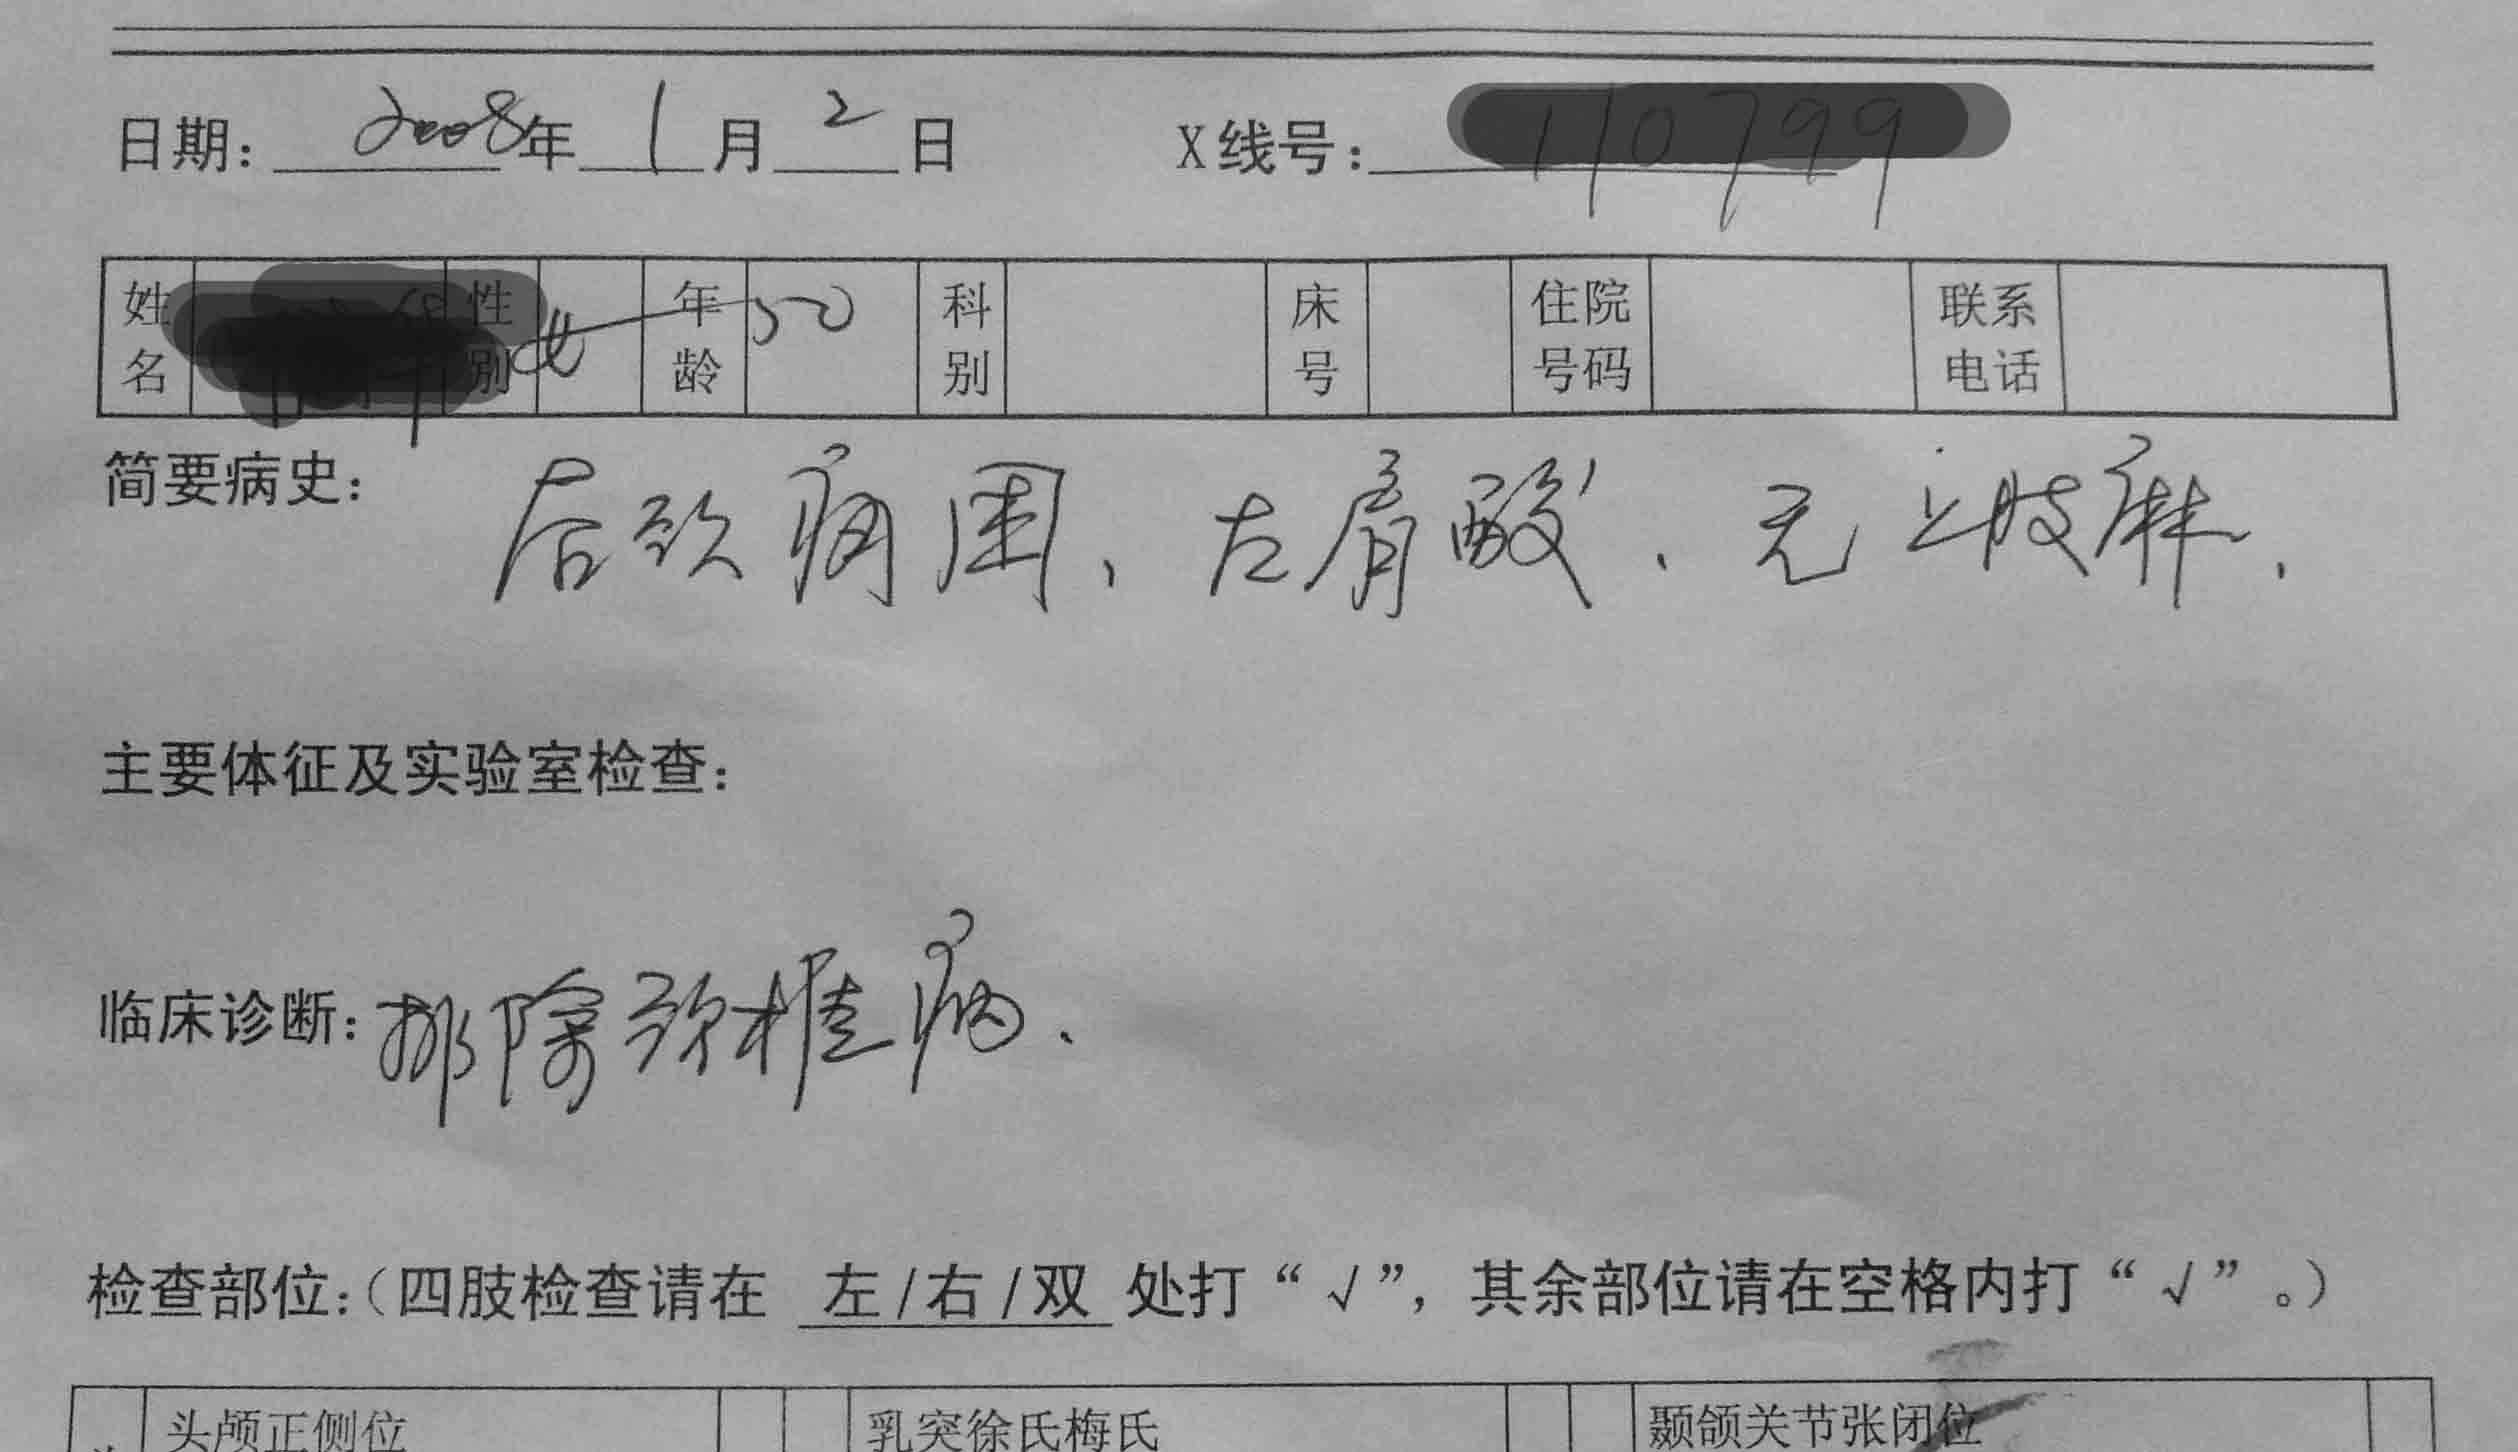 日期: 2008年 1 月 2 日 X线号: 110799
姓名 性别 女 年龄 50 科别 床号 住院号码 联系电话
简要病史: 后颈痛困、左肩酸、无上肢麻.
主要体征及实验室检查:
临床诊断: 排除颈椎病.
检查部位:(四肢检查请在 左/右/双 处打“√”, 其余部位请在空格内打“√”。)
头颅正侧位 乳突徐氏梅氏 颞颌关节张闭位